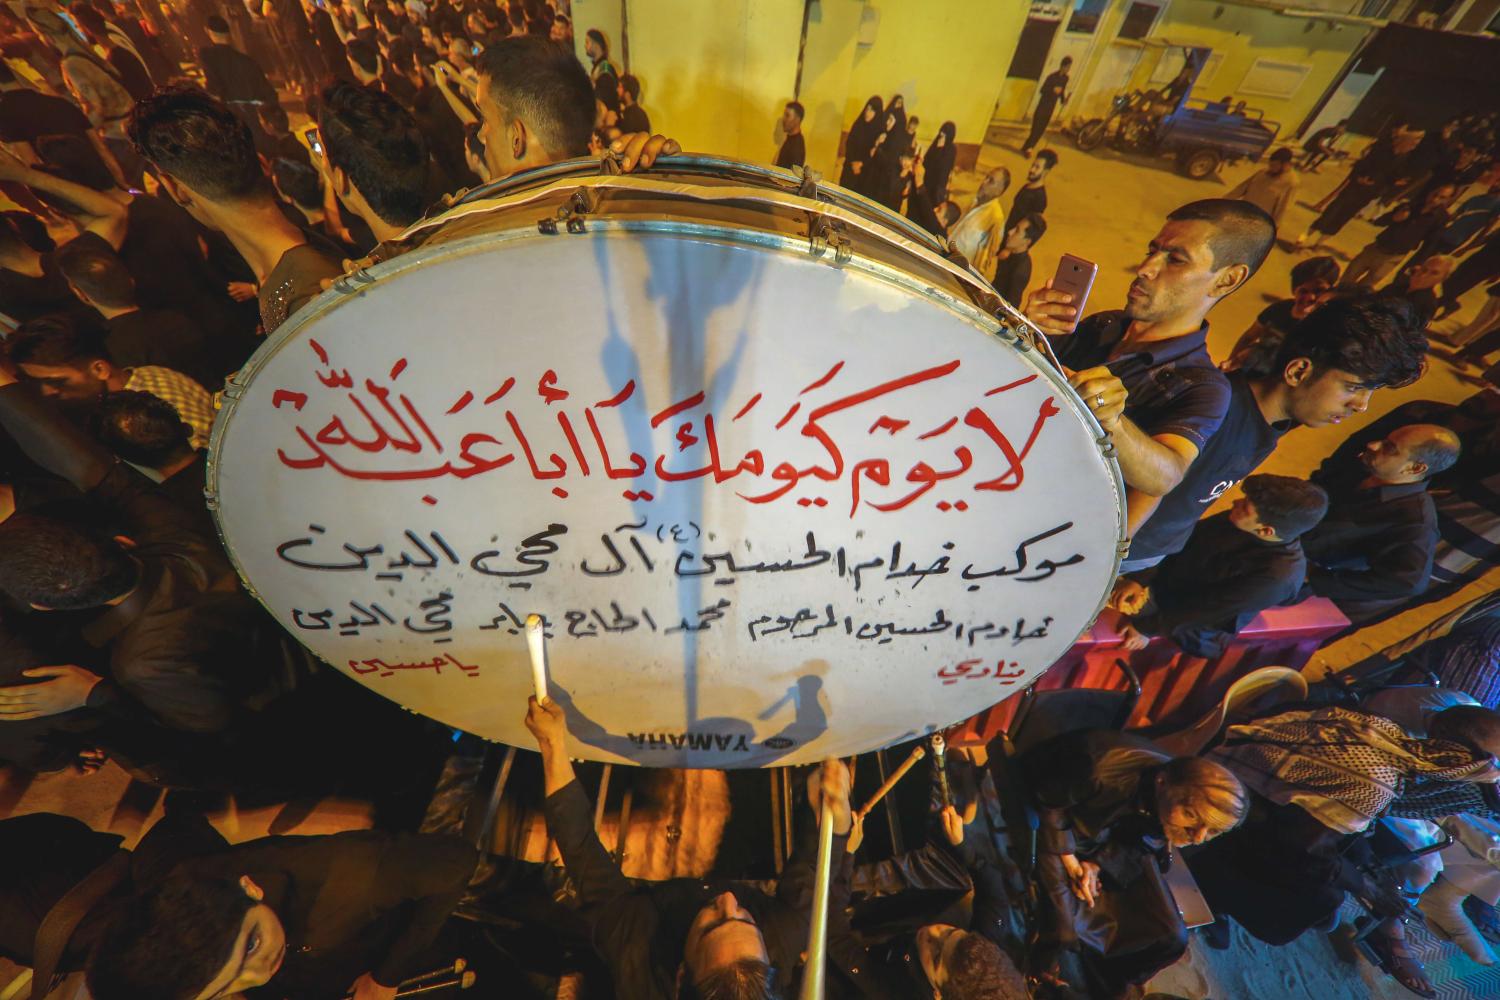 لَا يَوْم كَيَومَكَ يَا أَبَا عَبَد اَللّٰه
موكب خدام الحسين (٤) آل محي الدين
خادم الحسين المرحوم محمد الحاج جابر محي الدين
ينادي يا حسين
YAMAHA